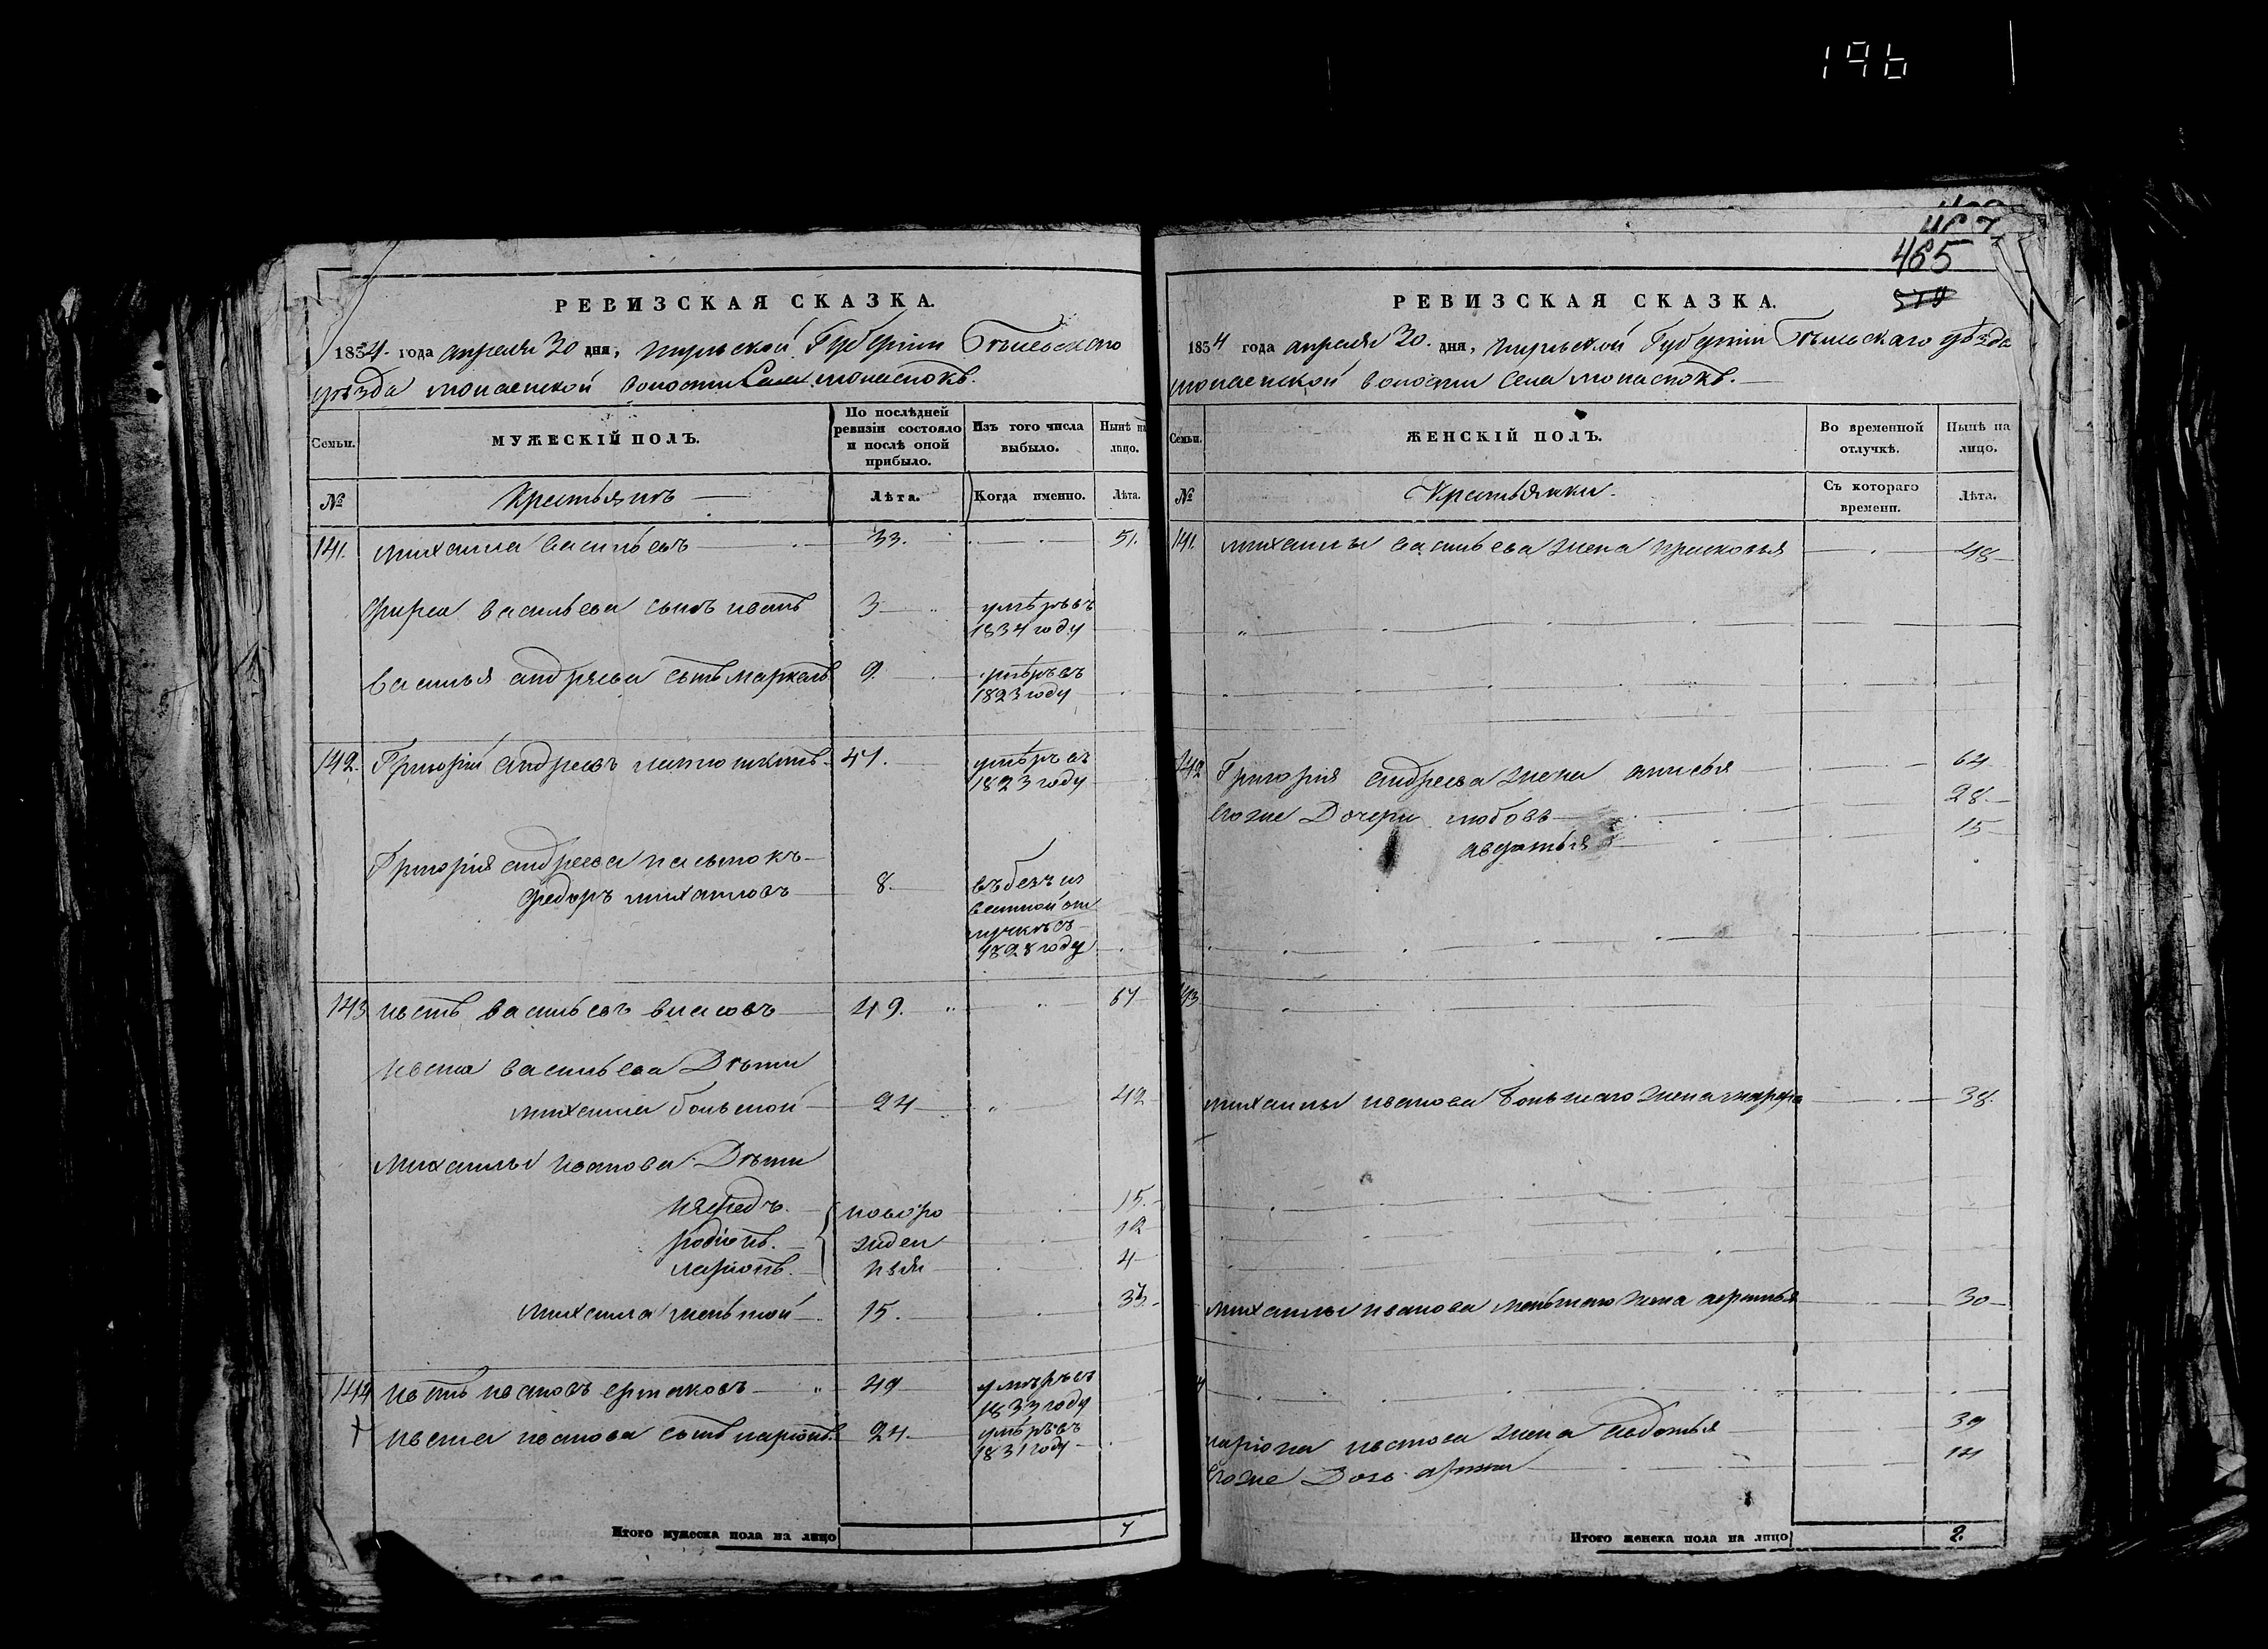 196
465
РЕВИЗСКАЯ СКАЗКА.
1834. года апреля 30 дня, Губернiи
уѣзда волости Села
Семьи.
МУЖЕСКІЙ ПОЛЪ.
По послѣдней ревизіи состояло и послѣ оной прибыло.
Изъ того числа выбыло.
Нынѣ на лицо.
№
Крестьянъ
Лѣта.
Когда именно.
Лѣта.
141. михаила васильевъ 33. 51.
фирса васильева сынъ иванъ 3 умѣръ въ
1834 году
василья андреева сынъ маркелъ 9. умѣръ въ
1823 году
142. Григорiй андреевъ 47. умѣръ въ
1823 году
Григорiя андреева пасынокъ
федоръ михаиловъ 8. въ безъ из
вестной от
лучкѣ съ
1828 году
143 иванъ васильевъ власовъ 49. 67
ивана васильева Дѣти
михаила большой 24 42
михаилы иванова Дѣти
нефедъ. новоро 15.
родiонъ. жден 12
ларiонъ. ныя 4
михаила меньшой 15. 33.
144 иванъ ивановъ ермаковъ 49 умѣръ въ
1833 году
ивана иванова сынъ ларiонъ 24. умѣръ въ
1831 году
Итого мужеска пола на лицо 7
РЕВИЗСКАЯ СКАЗКА.
1834 года апреля 30. дня, Губернiи уѣзда
волости Села
Семьи.
ЖЕНСКІЙ ПОЛЪ.
Во временной отлучкѣ.
Нынѣ на лицо.
№
Крестьянки.
Съ котораго времени.
Лѣта.
141. михаилы васильева жена прасковья 48
142 Григорiя андреева жена анисья 64
Егоже Дочери любовь 28
авдотья 15
143.
михаилы иванова большаго жена марфа 38.
михаилы иванова меньшаго жена 30
ларiона иванова жена авдотья 39
Егоже Дочь арина 14
Итого женска пола на лицо 2.